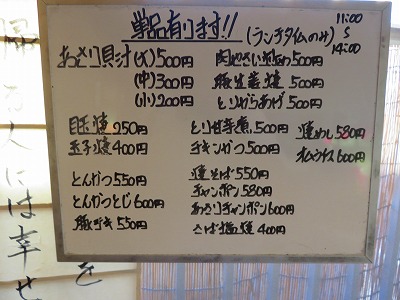 単品有ります!!
(ランチタイムのみ)
11:00
S
14:00
あっさり貝汁(大)500円
(中)300円
(小)200円
肉やさい炒め500円
豚生姜焼 500円
とりからあげ 500円
目玉焼 250円
玉子焼 400円
とり甘辛煮 500円
チキンかつ 500円
焼めし 580円
オムライス 600円
とんかつ 550円
とんかつとじ 600円
豚汁 550円
焼そば 550円
チャンポン 580円
あさりチャンポン 600円
さば塩焼 400円
人には幸せ
を